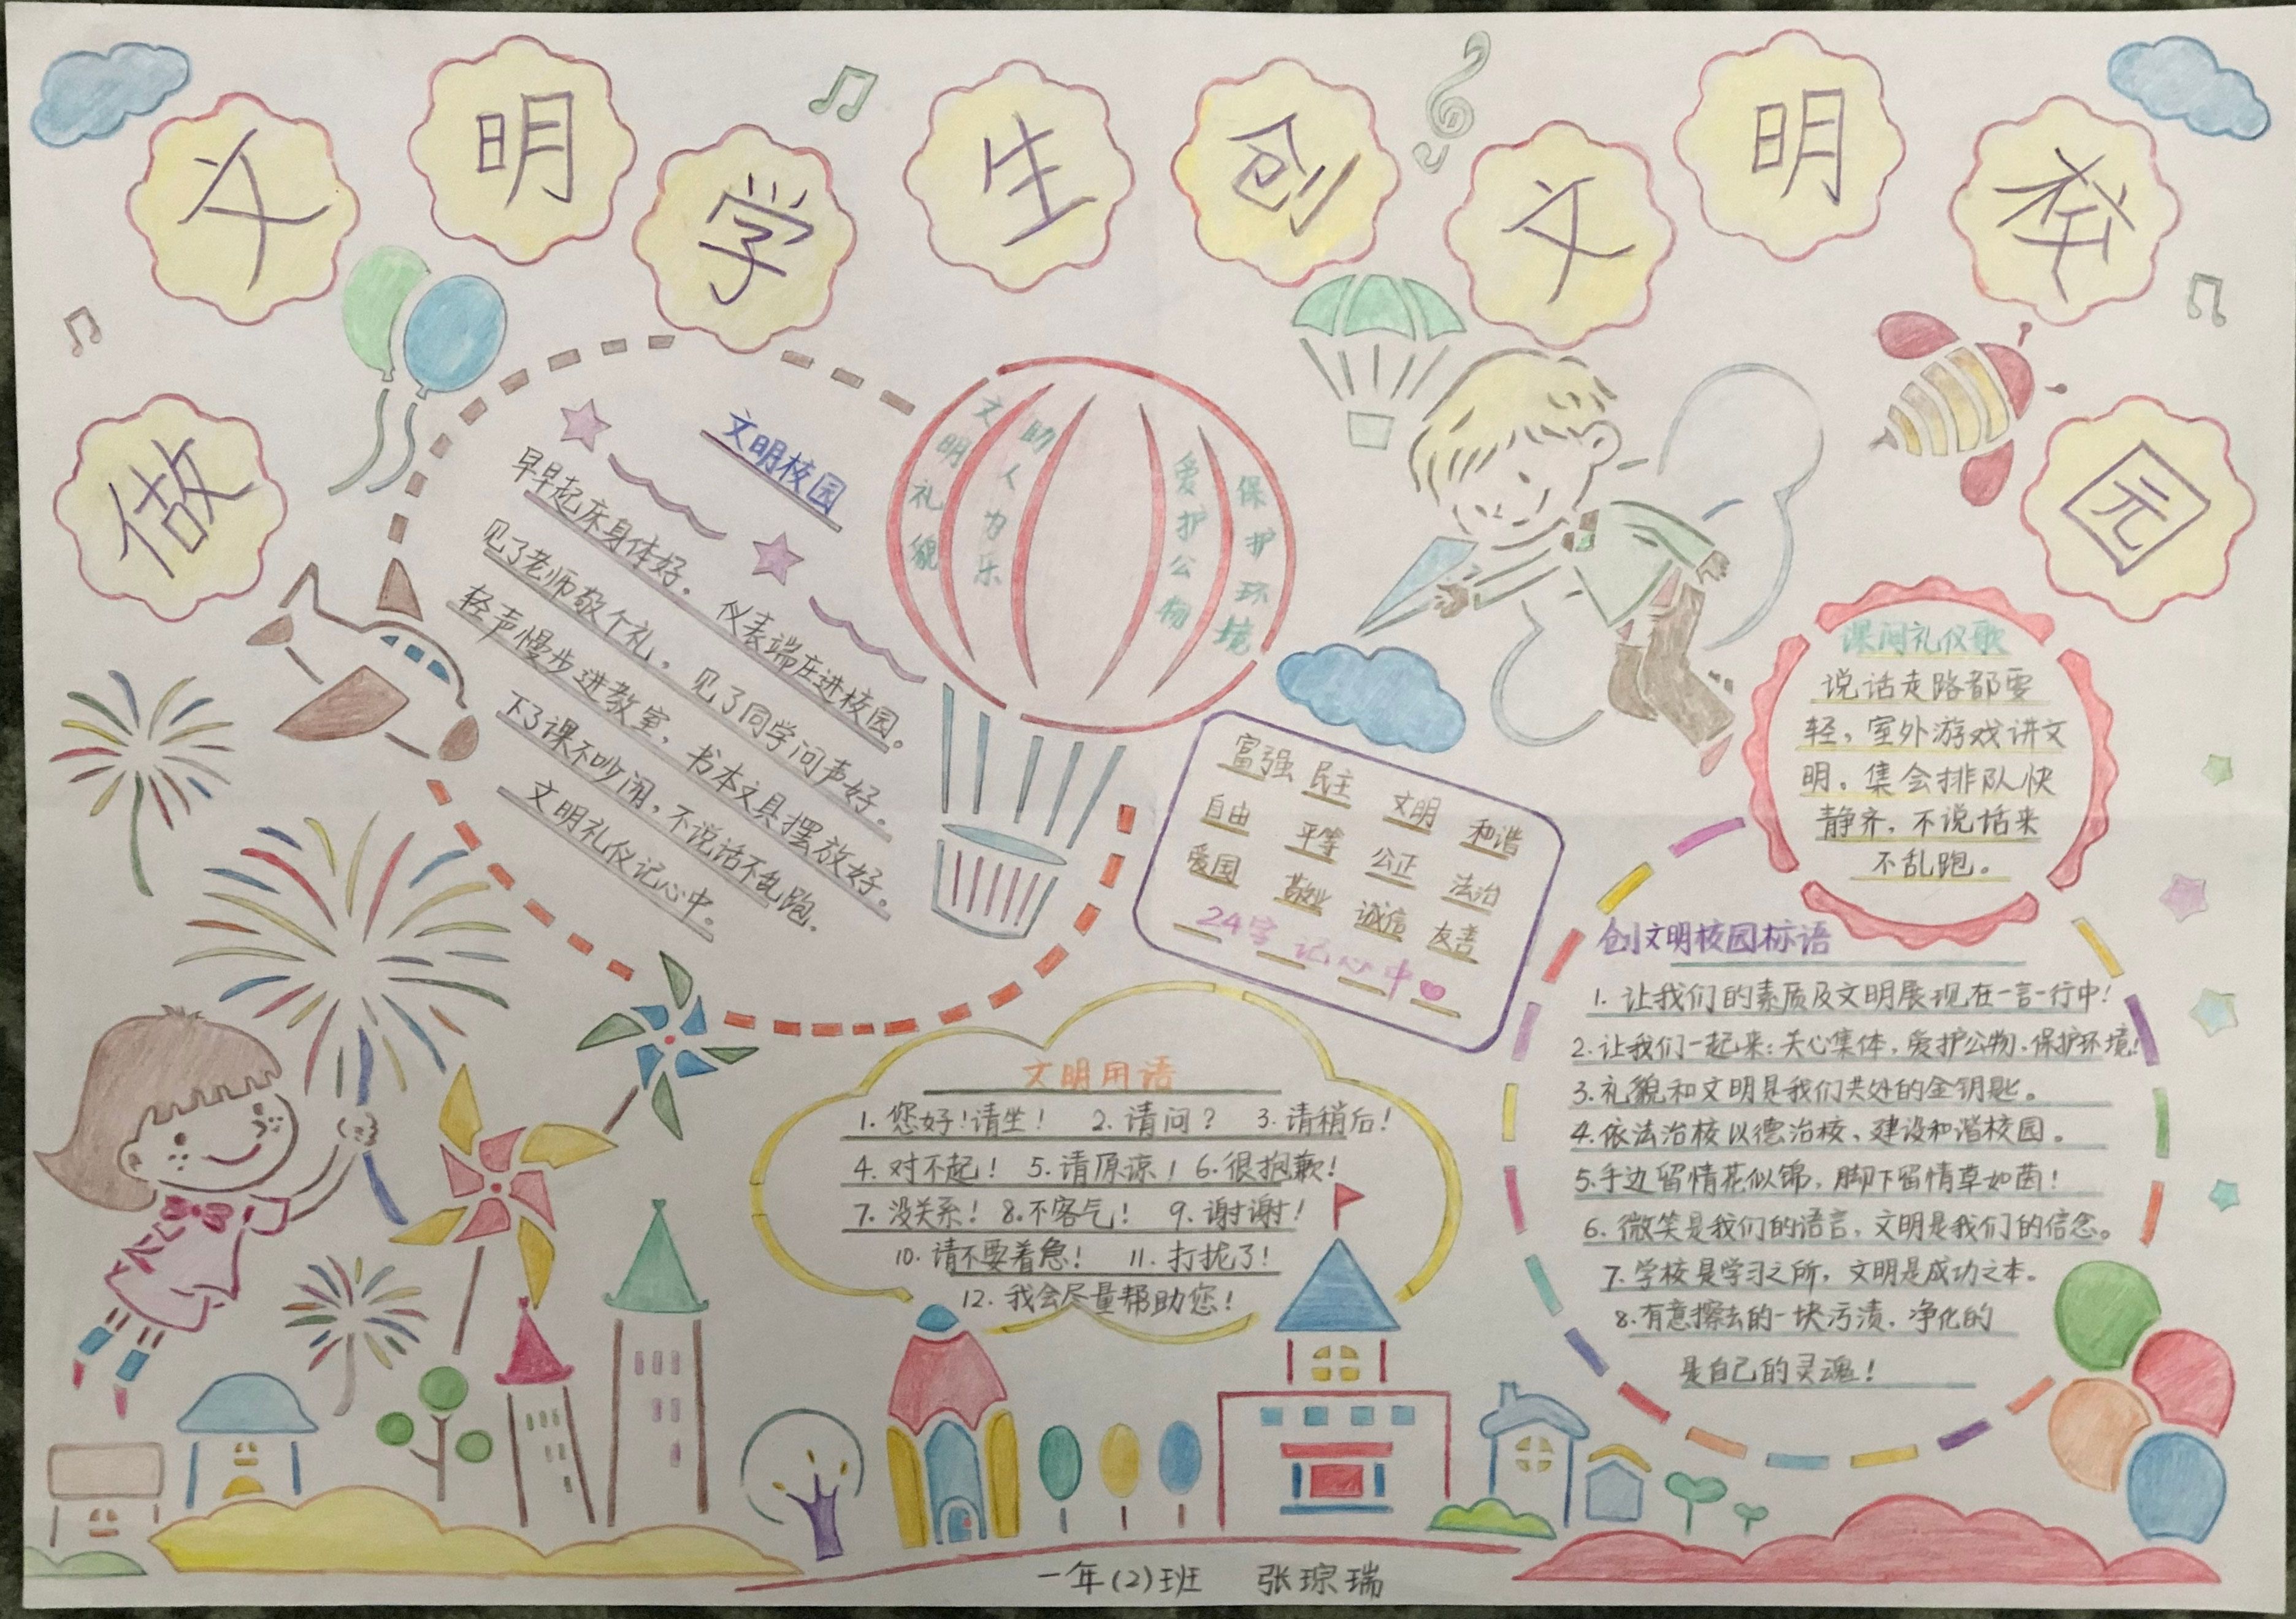 做文明学生创文明校园
文明校园
早早起床身体好，仪表端庄进校园。
见了老师敬个礼，见了同学问声好。
轻声慢步进教室，书本文具摆放好。
下了课不吵闹，不说话不乱跑。
文明礼仪记心中。
文明礼貌
助人为乐
爱护公物
保护环境
富强 民主 文明 和谐
自由 平等 公正 法治
爱国 敬业 诚信 友善
24字记心中
课间礼仪歌
说话走路都要
轻，室外游戏讲文
明。集会排队快
静齐，不说话来
不乱跑。
文明用语
1. 您好！请坐！ 2. 请问？ 3. 请稍后！
4. 对不起！ 5. 请原谅！ 6. 很抱歉！
7. 没关系！ 8. 不客气！ 9. 谢谢！
10. 请不要着急！ 11. 打扰了！
12. 我会尽量帮助您！
创文明校园标语
1. 让我们的素质及文明展现在一言一行中！
2. 让我们一起来：关心集体，爱护公物、保护环境！
3. 礼貌和文明是我们共处的金钥匙。
4. 依法治校以德治校、建设和谐校园。
5. 手边留情花似锦，脚下留情草如茵！
6. 微笑是我们的语言，文明是我们的信念。
7. 学校是学习之所，文明是成功之本。
8. 有意擦去的一块污渍，净化的
是自己的灵魂！
一年(2)班 张琮瑞